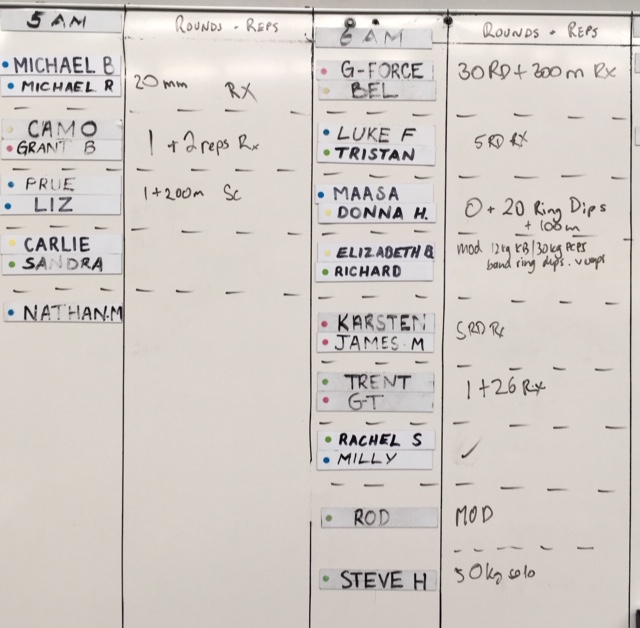 5 AM
ROUNDS - REPS
MICHAEL B
MICHAEL R
20 mm RX
CAMO
GRANT B
1 + 2 reps Rx
PRUE
LIZ
1+200m Sc
CARLIE
SANDRA
NATHAN.M
6 AM
ROUNDS - REPS
G-FORCE
BEL
30RD + 300m Rx
LUKE F
TRISTAN
5RD RX
MAASA
DONNA H.
0 + 20 Ring Dips
+ 100m
ELIZABETH B
RICHARD
mod 12kg KB/30kg
band ring dips.
KARSTEN
JAMES M
5RD Rx
TRENT
G-T
1+26 Rx
RACHEL S
MILLY
✓
ROD
MOD
STEVE H
50kg solo